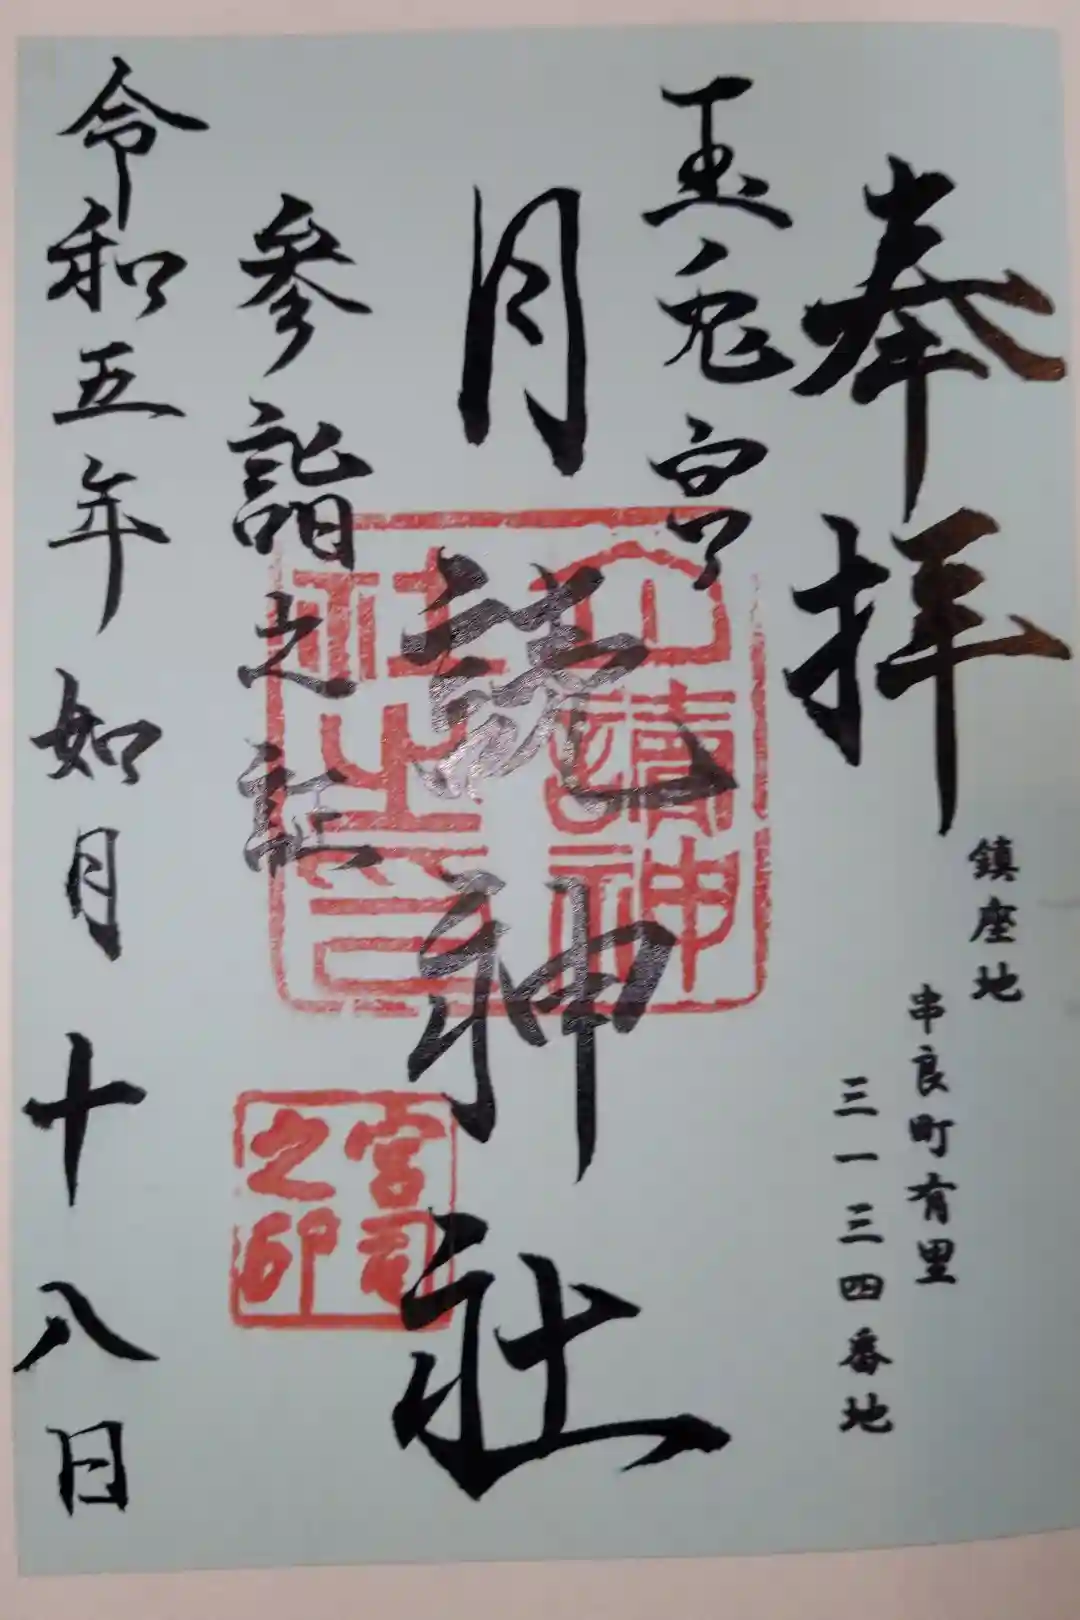 奉拝
鎮座地
串良町有里
三一三四番地
玉兎宮
月読神社
月讀神社之印
参詣之証
宮司之印
令和五年如月十八日